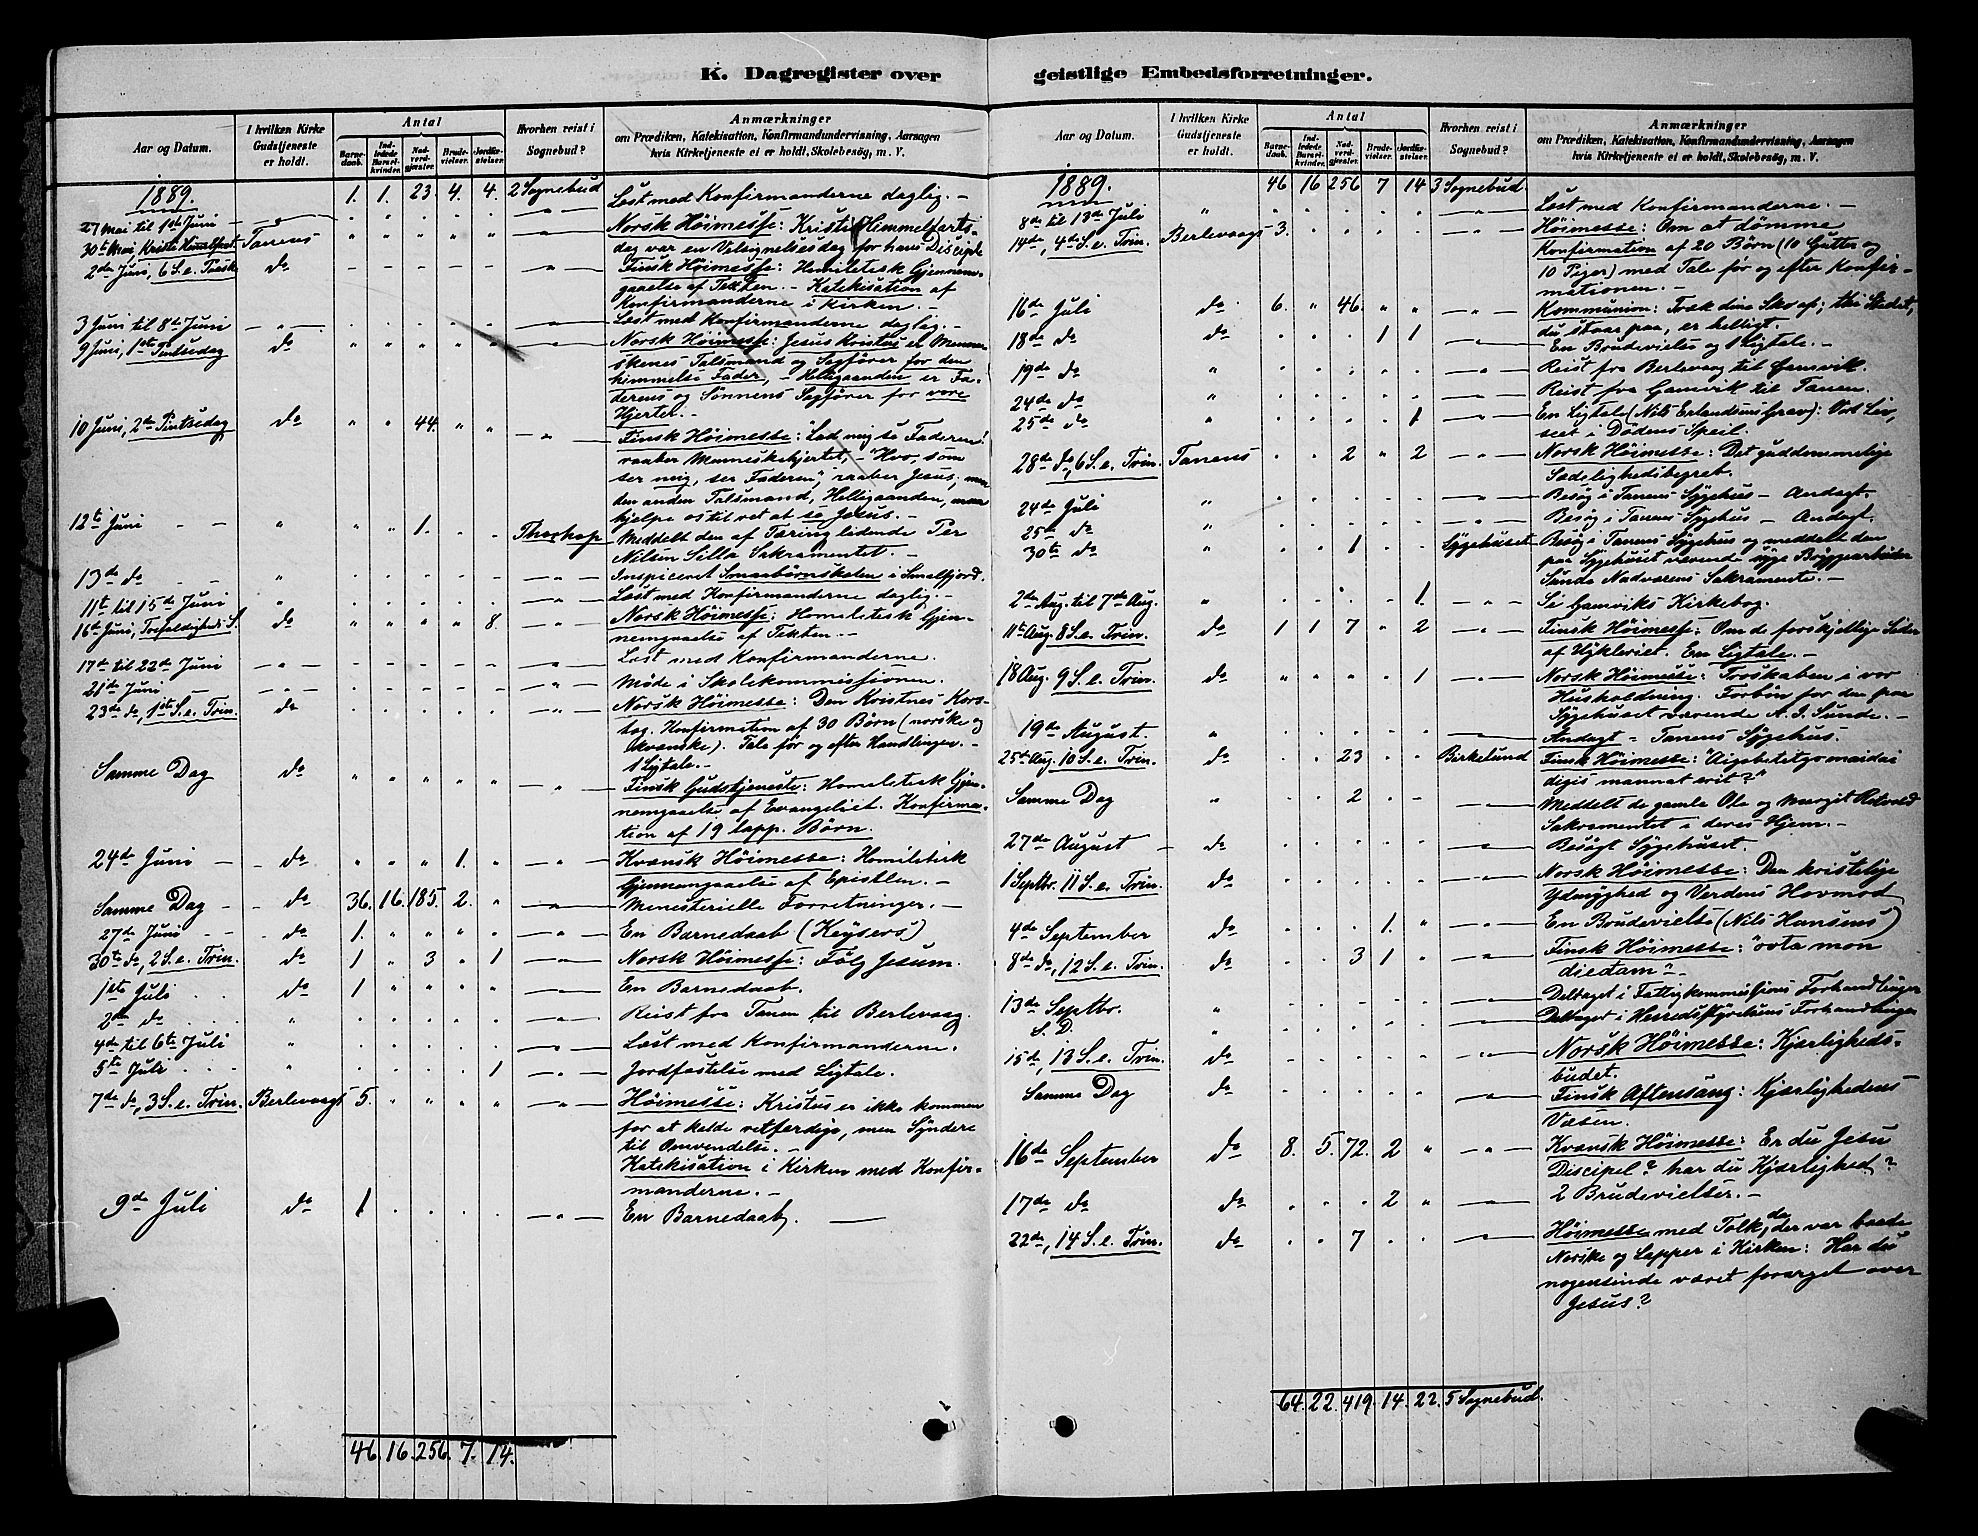 K. Dagregister over
Aar og Datum.
I hvilken Kirke Gudstjeneste er holdt.
Antal
Barnedaab. Indledede Barselkvinder. Nadverdgjæster. Brudevielser. Jordfæstelser.
Hvorhen reist i Sognebud?
Anmærkninger
om Prædiken, Katekisation, Konfirmandundervisning, Aarsagen
hvis Kirketjeneste ei er holdt, Skolebesøg, m. V.
1889. 1. 1. 23. 4. 4. 2 Sognebud Læst med Konfirmanderne daglig. –
27 Mai til 1ste Juni
30te Mai, Kristi Himelfart Tanens Norsk Höimesse: Kristi Himmelfarts-
dag var en Velsignelsesdag for hans Disciple
2den Juni, 6 S. e. Paaske do Finsk Höimesse: Homiletisk Gjennem-
gaaelse af Texten. – Katekisation af
Konfirmanderne i Kirken. –
3 Juni til 8de Juni Læst med Konfirmanderne daglig. –
9 Juni, 1ste Pintsedag do Norsk Höimesse: Jesus Kristus er Menne-
skenes Talsmand og Sagfører for den
himmelske Fader, – Helligaanden er Fa-
derens og Sønnens Sagfører for vore
Hjerter. –
10 Juni, 2den Pintsedag do 44. Finsk Höimesse: "Lad mig se Faderen"!
raaber Menneskehjertet, – "Hvo, som
ser mig, ser Faderen", raaber Jesus; men
den anden Talsmand, Helligaanden, maa
hjelpe os til ret at se Jesus. –
12te Juni 1. Meddelt den af Tæring lidende Per
Nilsen Silla Sakramentet. –
13de do Inspiceret Smaabörnskolen i Smalfjord.
11te til 15de Juni Læst med Konfirmanderne daglig. –
16de Juni, Trefoldigheds S. do 8. Norsk Höimesse: Homiletisk Gjen-
nemgaaelse af Texten. –
17de til 22de Juni Læst med Konfirmanderne.
21de Juni Möde i Skolekommissionen.
23de do, 1ste S. e. Trin. do Norsk Höimesse: Den Kristnes Kors-
tog. Konfirmation af 30 Börn (norske og
kvænske). Tale før og efter Handlingen. –
1 Ligtale. –
Samme Dag do Finsk Gudstjeneste: Homiletisk Gjen-
nemgaaelse af Evangeliet. Konfirma-
tion af 19 lapp. Börn.
24de Juni do 1. Kvænsk Höimesse: Homiletisk
Gjennemgaaelse af Epistlen. –
Samme Dag do 36. 16. 185. 2. Ministerielle Forretninger. –
27de Juni do 1. En Barnedaab (Keysers)
30te do, 2 S. e. Trin. do 1 3 1 Norsk Höimesse: Følg Jesum.
1ste Juli do 1 En Barnedaab.
2den do Reist fra Tanen til Berlevaag.
4de til 6te Juli Læst med Konfirmanderne.
5te Juli 1 Jordfæstelse med Ligtale.
7de do, 3 S. e. Trin. Berlevaags 5. Höimesse: Kristus er ikke kommen
for at kalde retfærdige, men Syndere
til Omvendelse. –
Katekisation i Kirken med Konfir-
manderne. –
9de Juli do 1 En Barnedaab. —
46. 16. 256. 7. 14.
geistlige Embedsforretninger.
Aar og Datum.
I hvilken Kirke Gudstjeneste er holdt.
Antal
Barnedaab. Indledede Barselkvinder. Nadverdgjæster. Brudevielser. Jordfæstelser.
Hvorhen reist i Sognebud?
Anmærkninger
om Prædiken, Katekisation, Konfirmandundervisning, Aarsagen
hvis Kirketjeneste ei er holdt, Skolebesøg, m. V.
1889. 46 16 256 7 14 3 Sognebud.
8de til 13de Juli Læst med Konfirmanderne. –
14de, 4de S. e. Trin. Berlevaags 3. Höimesse: Om at dömme.
Konfirmation af 20 Börn (10 Gutter og
10 Piger) med Tale før og efter Konfir-
mationen. –
16de Juli do 6. 46. Kommunion: Træk dine Sko af; thi Stedet,
du staar paa, er helligt.
18de do do 1 1 En Brudevielse og 1 Ligtale. –
19de do Reist fra Berlevaag til Gamvik.
24de do Reist fra Gamvik til Tanen.
25de do 1 En Ligtale (Nils Erlandsens Grav): Vort Liv,
seet i Dödens Speil.
28de do, 6 S. e. Trin. Tanens 2 2 Norsk Höimesse: Det guddommelige
Sædelighedsbegreb.
24de Juli Besög i Tanens Sygehus – Andagt.
25de do Besög i Tanens Sygehus – Andagt.
30te do 1 Sygehuset Besög i Tanens Sygehus og meddelt den
paa Sygehuset værende syge Bryggearbeider
Sunde Nadverens Sakramente. –
2den Aug. til 7de Aug. 1. Se Gamviks Kirkebog.
11te Aug. 8 S. e. Trin. do 1 1 7 2 Finsk Höimesse: Om de forskjellige Sider
af Hykleriet. En Ligtale. –
18 Aug. 9 S. e. Trin. do 1 Norsk Höimesse: Troskaben i vor
Husholdning. Forbön for den paa
Sygehuset værende A. J. Sunde. –
19de August. Andagt – Tanens Sygehus.
25te Aug. 10 S. e. Trin. do 23 Birkelund Finsk Höimesse:
digis mannat erit?"
Samme Dag 2 Meddelt de gamle Ole og Margit
Sakramentet i deres Hjem. –
27de August do Besögt Sygehuset.
1 Septbr. 11 S. e. Trin. do Norsk Höimesse: Den kristelige
Ydmyghed og Verdens Hovmod
4de September do 1. En Brudevielse (Nils Hansens)
8de do, 12 S. e. Trin. do 3 1 Finsk Höimesse:
13de Septbr. Deltaget i Fattigkommissions Forhandlinger
S. D. Deltaget i Herredsstyrelsens Forhandlinger
15de, 13 S. e. Trin. do Norsk Höimesse: Kjærligheds-
budet.
Samme Dag do Finsk Aftensang: Kjærlighedens
Væsen.
16de September do 8. 5. 72. 2 Kvænsk Höimesse: Er du Jesu
Discipel? har du Kjærlighed?
17de do do 2 2 Brudevielser. –
22de, 14 S. e. Trin. do 7 Höimesse med Tolk, da der var baade
Norske og Lapper i Kirken: Har du
nogensinde været forarget over
Jesus?
64. 22. 419. 14. 22. 5 Sognebud.